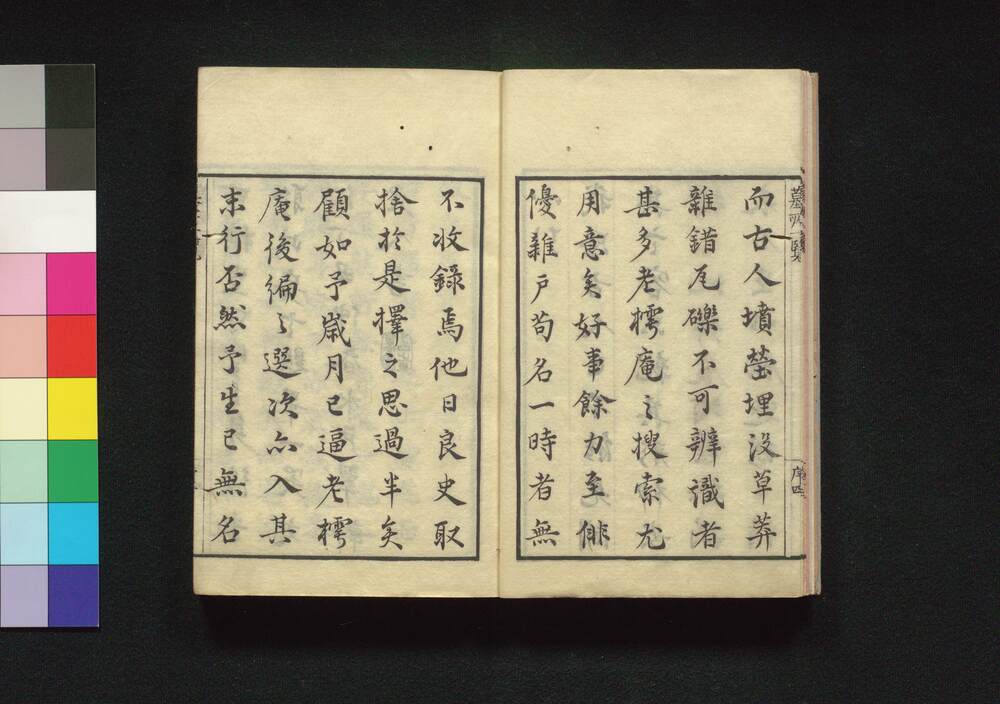 而古人墳塋埋没草莽
雜錯瓦礫不可辨識者
甚多老樗庵之搜索尤
用意矣好事餘力至俳
優雜戸苟名一時者無
不收錄焉他日良史取
捨於是擇之思過半矣
顧如予歳月已逼老樗
庵後編之選次亦入其
末行否然予生已無名
序四